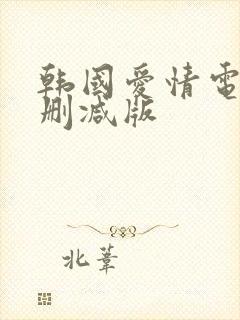 韩国爱情电
删减版
北葦